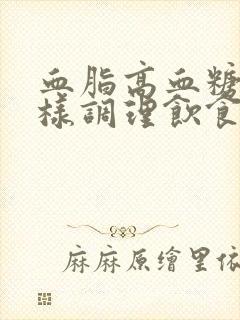 血脂高血糖
樣調理飲食
麻麻原繪里依